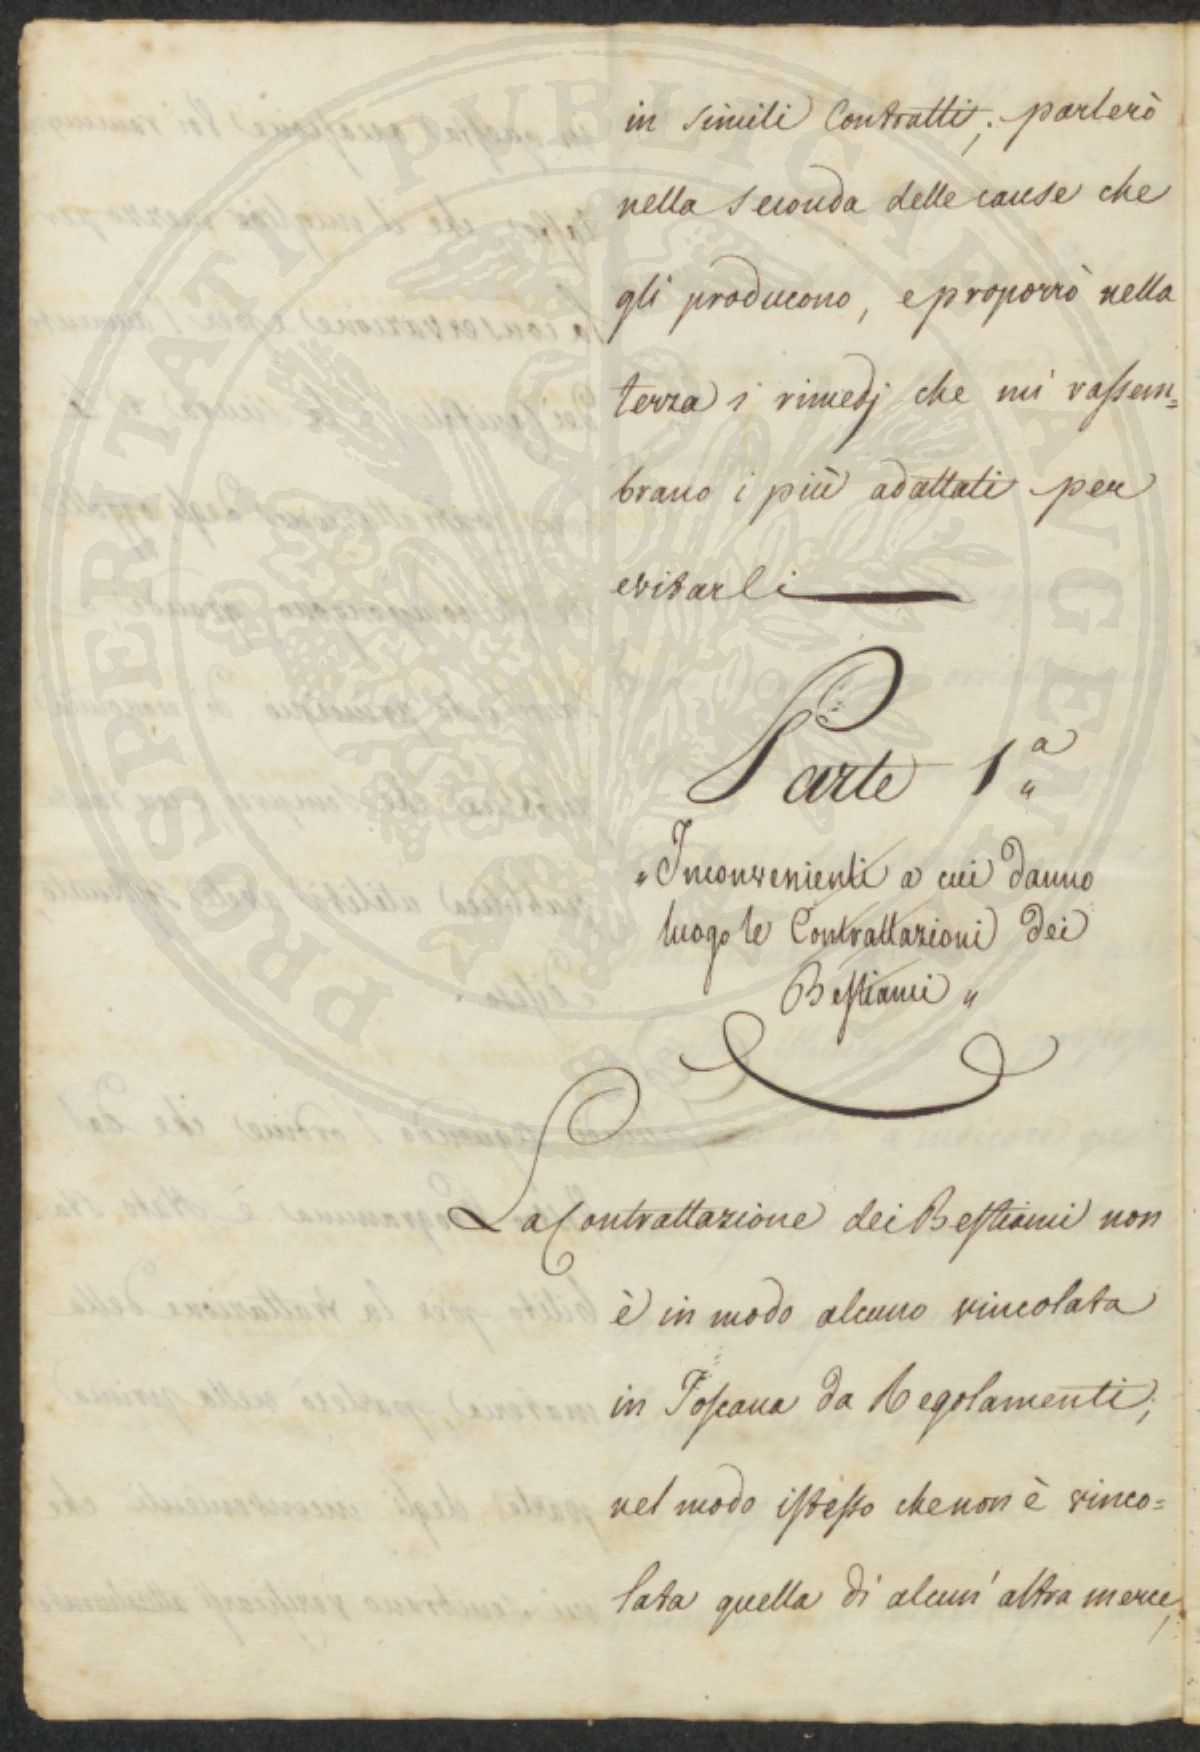 in simili Contratti; parlerò
nella seconda delle cause che
gli producono, e proporrò nella
terza i rimedj che mi rassem=
brano i più adattati per
evitarli
Parte 1.ª
"Inconvenienti a cui danno
luogo le Contrattazioni dei
Bestiami"
La Contrattazione dei Bestiami non
è in modo alcuno vincolata
in Toscana da Regolamenti;
nel modo istesso che non è vinco=
lata quella di alcun' altra merce,
PROSPERITATI PUBLICAE AUGENDAE